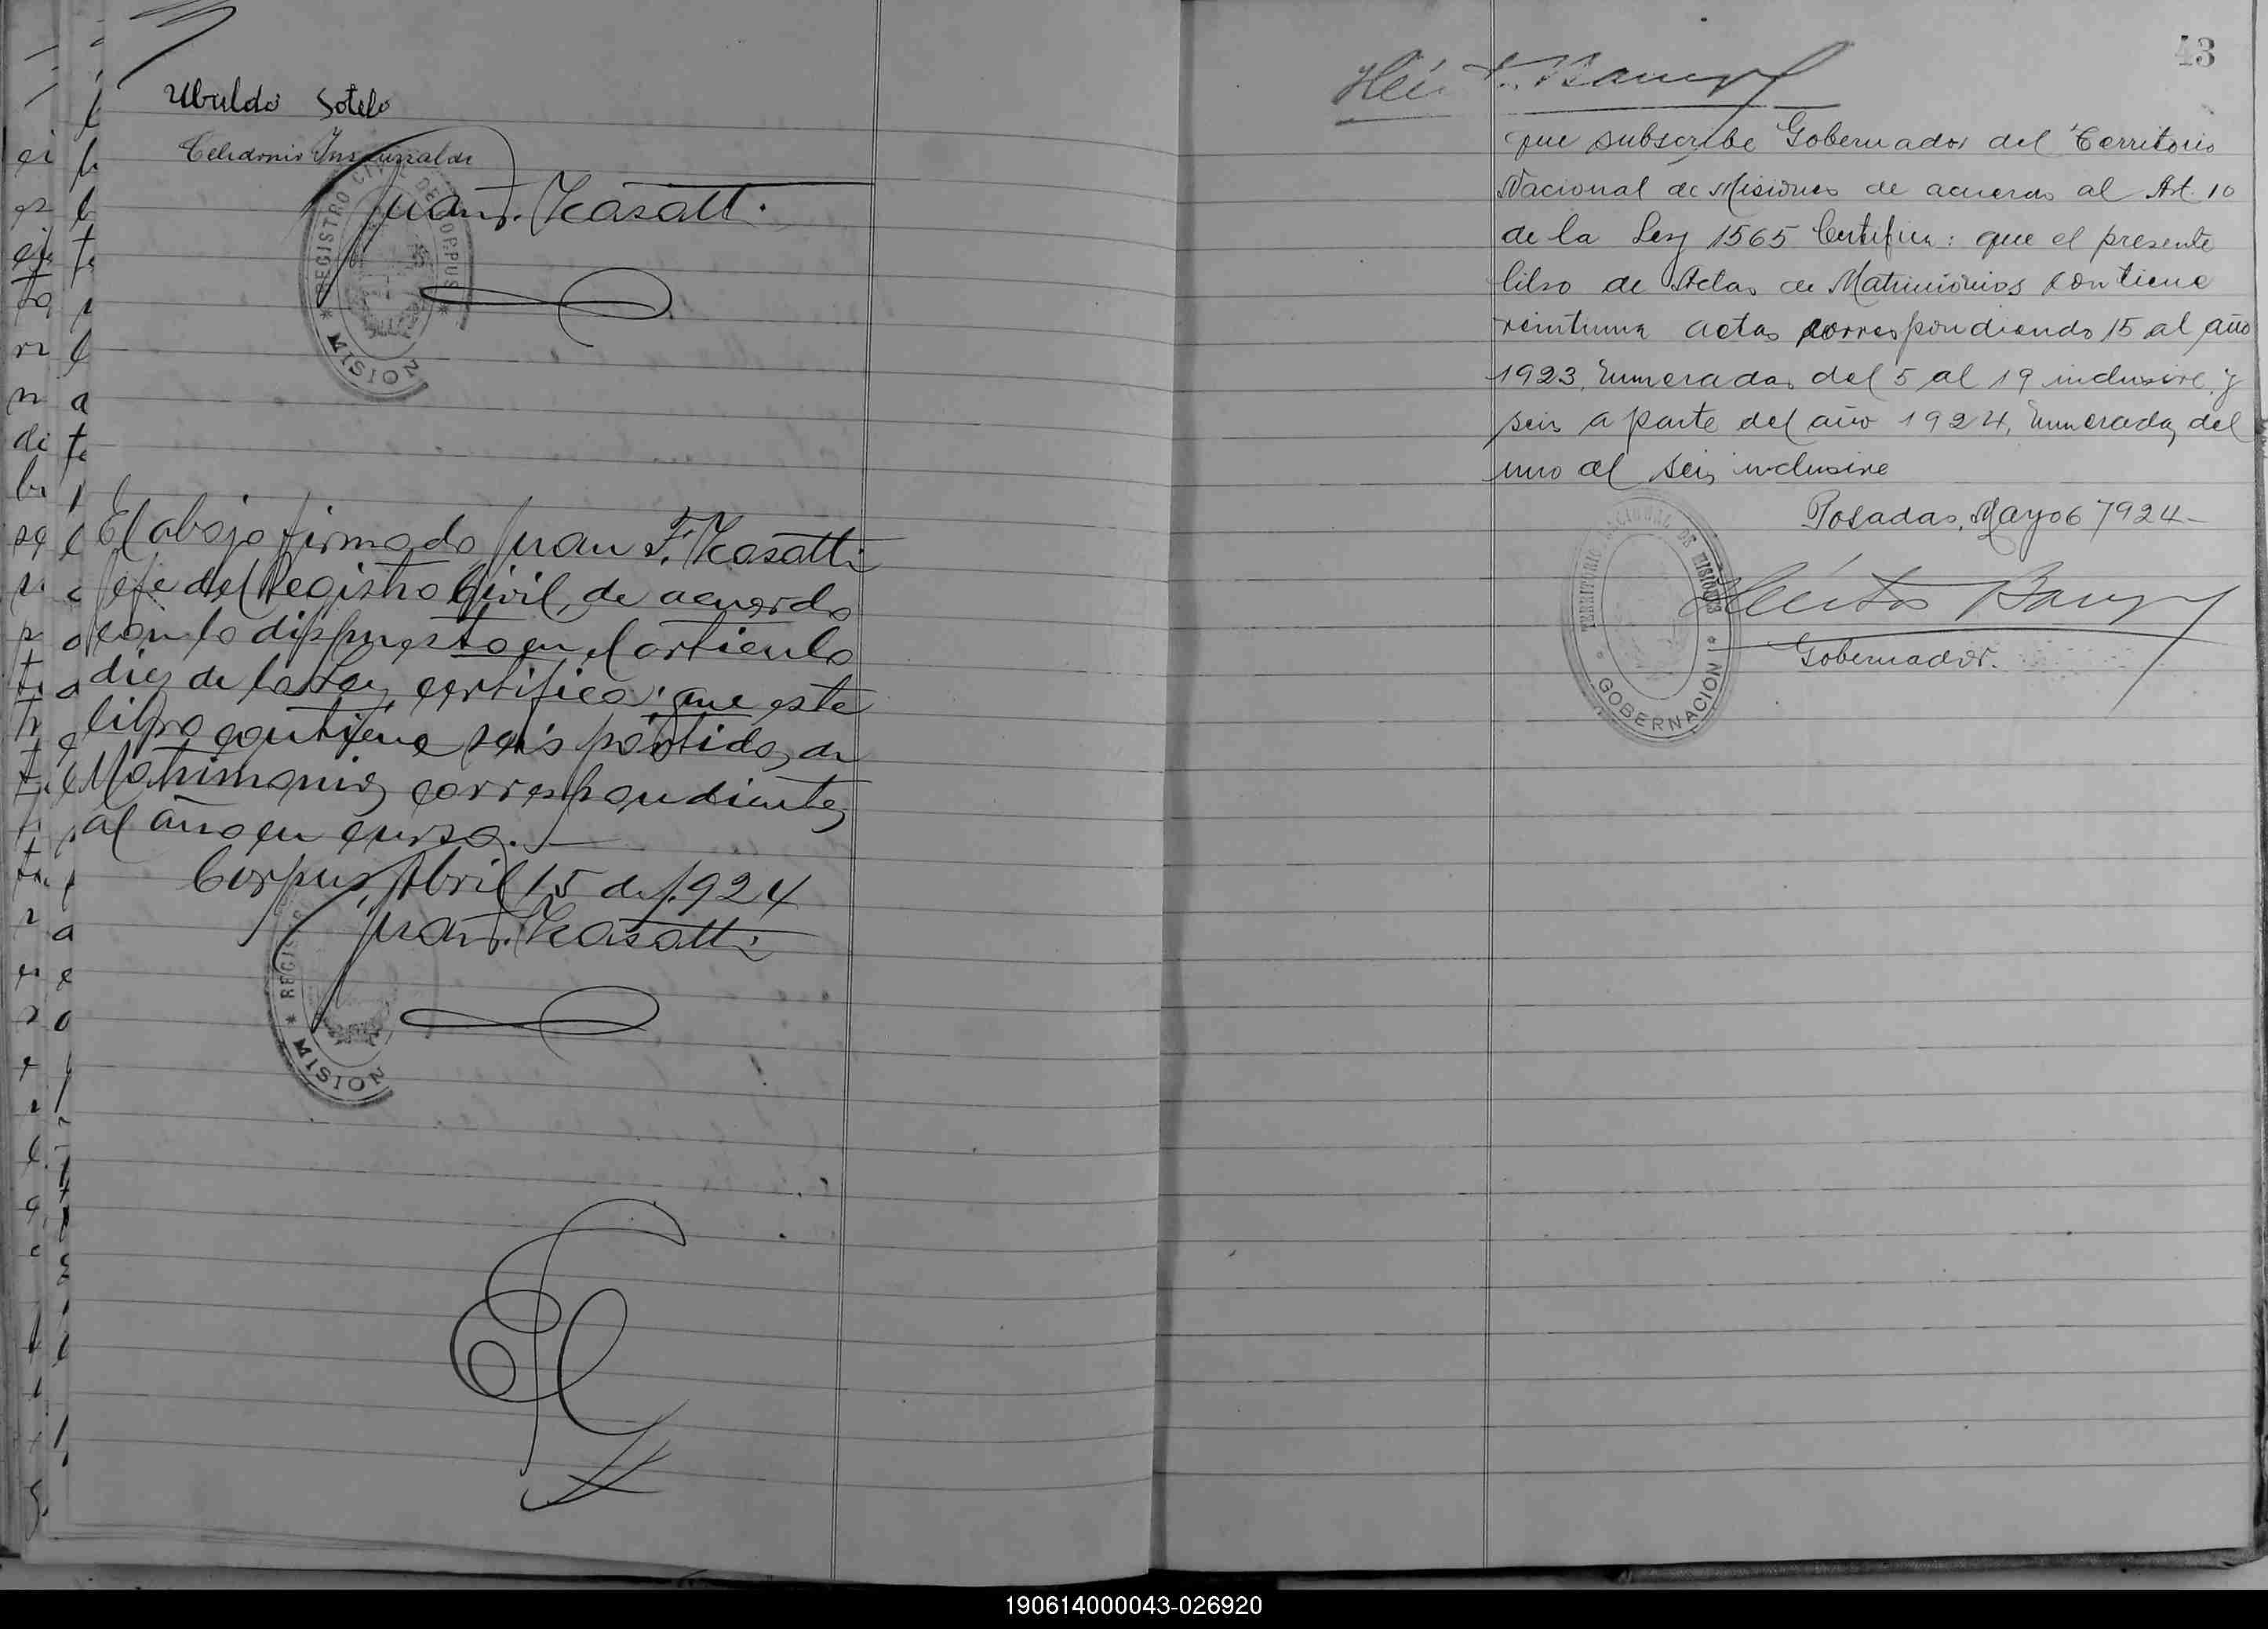 Ubaldo Sotelo
Celedonio Insaurralde
Juan F. Kasatti
REGISTRO CIVIL DE CORPUS
* MISION *
El abajo firmado Juan F. Kasatti
Jefe del Registro Civil, de acuerdo
con lo dispuesto en el articulo
diez de la Ley, certifica: que este
libro contiene seis partidas de
Matrimonios correspondientes
al año en curso.
Corpus, Abril 15 de 1.924
Juan F. Kasatti
REGIS
* MISION
43
Héctor Barreyro
que subscribe Gobernador del Territorio
Nacional de Misiones de acuerdo al Art. 10
de la Ley 1565 Certifica: que el presente
libro de Actas de Matrimonios contiene
veintiuna actas correspondiendo 15 al año
1923, numeradas del 5 al 19 inclusive y
seis a parte del año 1924, numeradas del
uno al seis inclusive
Posadas, Mayo 6 1924-
TERRITORIO NACIONAL DE MISIONES
* GOBERNACIÓN *
Héctor Barreyro
Gobernador.
190614000043-026920